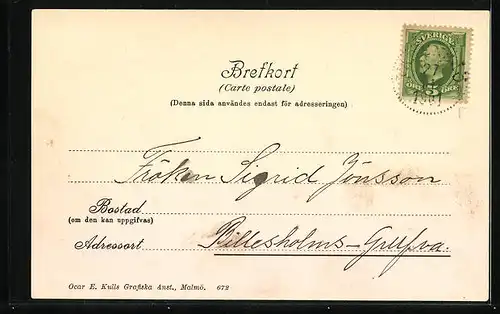 SVERIGE
5
ÖRE 5 ÖRE
1901
Brefkort
(Carte postale)
(Denna sida användes endast för adresseringen)
Fröken Sigrid Jönsson
Bostad
(om den kan uppgifvas)
Adressort Billesholms-Grufva.
Ocar E. Kulls Grafiska Anst., Malmö. 672